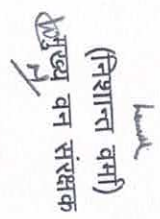 (निशान्त वर्मा)
मुख्य वन संरक्षक